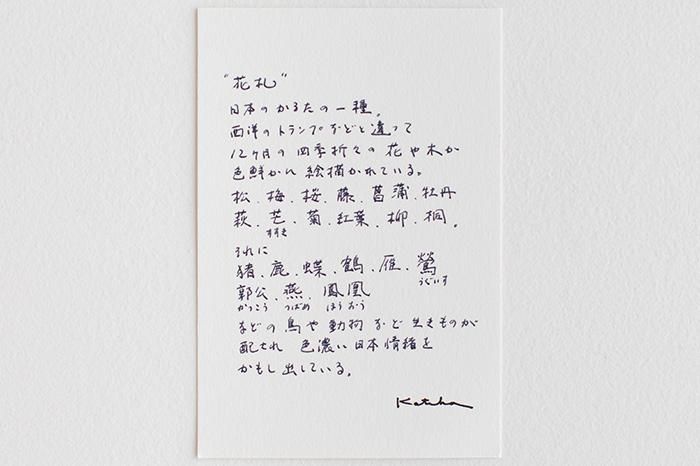 "花札"
日本のかるたの一種。
西洋のトランプなどと違って
12ヶ月の四季折々の花や木が
色鮮かに絵描かれている。
松、梅、桜、藤、菖蒲、牡丹
萩、芒、菊、紅葉、柳、桐。
すすき
それに
猪、鹿、蝶、鶴、雁、鶯
うぐいす
郭公、燕、鳳凰
かっこう つばめ ほうおう
などの鳥や動物など生きものが
配され 色濃い日本情緒を
かもし出している。